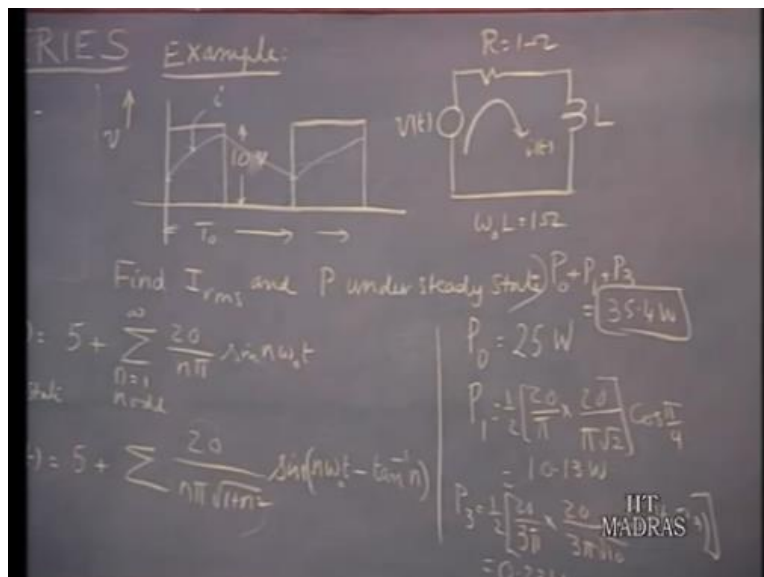 ERIES Example:
R=1Ω
v
i
10 V
V(t)
i(t)
L
T₀
ω₀L=1Ω
Find I_rms and P under steady state
P₀+P₁+P₃
= 35.4 W
)= 5 + ∞ Σ n=1 n odd 20/nπ sin nω₀t
State
-)= 5 + Σ 20/nπ√(1+n²) sin(nω₀t - tan⁻¹n)
P₀ = 25 W
P₁ = 1/2 [20/π × 20/π√2] Cos π/4
= 10.13 W
P₃ = 1/2 [20/3π × 20/3π√10
IIT
MADRAS